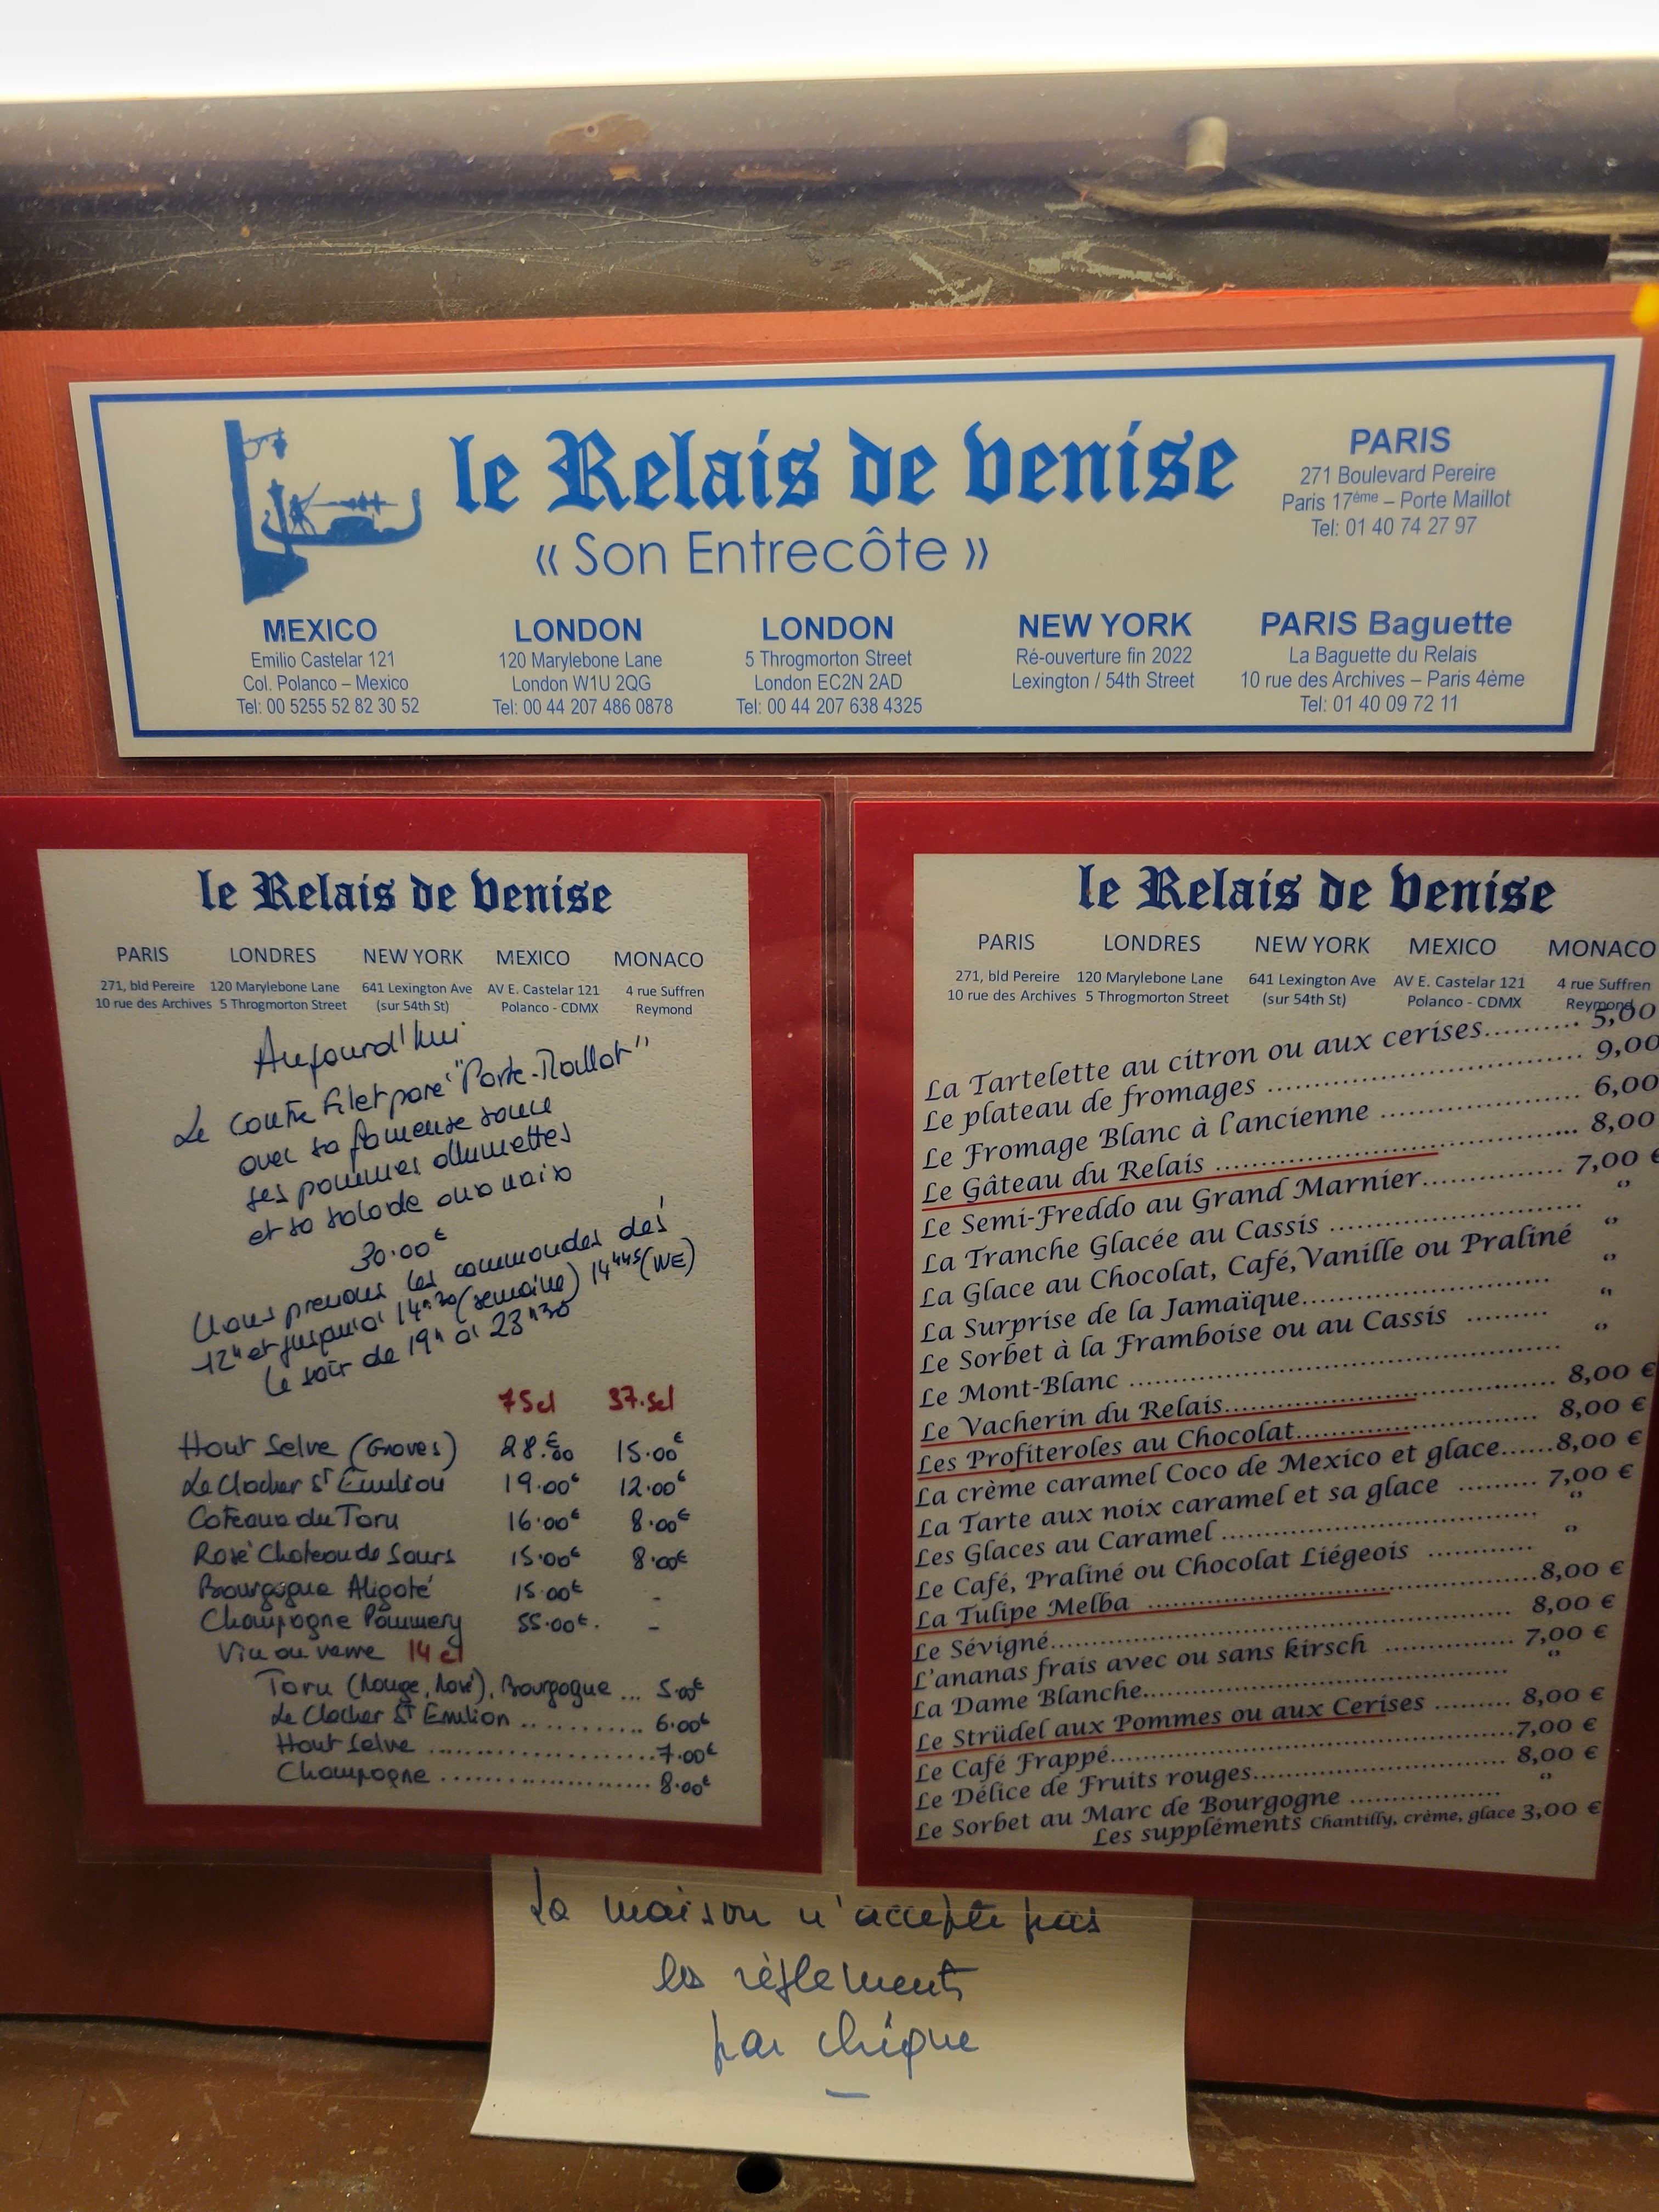 le Relais de Venise
« Son Entrecôte »
PARIS
271 Boulevard Pereire
Paris 17ème – Porte Maillot
Tel: 01 40 74 27 97
MEXICO
Emilio Castelar 121
Col. Polanco – Mexico
Tel: 00 5255 52 82 30 52
LONDON
120 Marylebone Lane
London W1U 2QG
Tel: 00 44 207 486 0878
LONDON
5 Throgmorton Street
London EC2N 2AD
Tel: 00 44 207 638 4325
NEW YORK
Ré-ouverture fin 2022
Lexington / 54th Street
PARIS Baguette
La Baguette du Relais
10 rue des Archives – Paris 4ème
Tel: 01 40 09 72 11
le Relais de Venise
PARIS LONDRES NEW YORK MEXICO MONACO
271, bld Pereire 120 Marylebone Lane 641 Lexington Ave AV E. Castelar 121 4 rue Suffren
10 rue des Archives 5 Throgmorton Street (sur 54th St) Polanco - CDMX Reymond
Aujourd'hui
Le Contre Filet paré "Porte-Maillot"
avec sa fameuse sauce
ses pommes allumettes
et sa salade aux noix
30.00€
Nous prenons les commandes dès
12h et jusqu'à 14h30 (semaine) 14h45 (WE)
le soir de 19h à 23h30
75cl 37.5cl
Haut Selve (Graves) 28.00€ 15.00€
Le Clocher St Emilion 19.00€ 12.00€
Coteaux du Toru 16.00€ 8.00€
Rosé Chateau de Sours 15.00€ 8.00€
Bourgogne Aligoté 15.00€ -
Champagne Pommery 55.00€. -
Vin au verre 14 cl
Toru (Rouge, Rosé), Bourgogne ... 5.00€
Le Clocher St Emilion ............ 6.00€
Haut Selve ........................ 7.00€
Champagne ...................... 8.00€
le Relais de Venise
PARIS LONDRES NEW YORK MEXICO MONACO
271, bld Pereire 120 Marylebone Lane 641 Lexington Ave AV E. Castelar 121 4 rue Suffren
10 rue des Archives 5 Throgmorton Street (sur 54th St) Polanco - CDMX Reymond
La Tartelette au citron ou aux cerises.......... 5,00
Le plateau de fromages .................................. 9,00
Le Fromage Blanc à l'ancienne ..................... 6,00
Le Gâteau du Relais ....................................... 8,00
Le Semi-Freddo au Grand Marnier............... 7,00 €
La Tranche Glacée au Cassis ........................... "
La Glace au Chocolat, Café, Vanille ou Praliné "
La Surprise de la Jamaïque.............................. "
Le Sorbet à la Framboise ou au Cassis ......... "
Le Mont-Blanc .................................................. "
Le Vacherin du Relais...................................... 8,00 €
Les Profiteroles au Chocolat............................ 8,00 €
La crème caramel Coco de Mexico et glace......8,00 €
La Tarte aux noix caramel et sa glace ......... 7,00 €
Les Glaces au Caramel ..................................... "
Le Café, Praliné ou Chocolat Liégeois ............ "
La Tulipe Melba ..............................................8,00 €
Le Sévigné....................................................... 8,00 €
L'ananas frais avec ou sans kirsch ............... 7,00 €
La Dame Blanche............................................... "
Le Strüdel aux Pommes ou aux Cerises ......... 8,00 €
Le Café Frappé.................................................7,00 €
Le Délice de Fruits rouges............................... 8,00 €
Le Sorbet au Marc de Bourgogne .................... "
Les suppléments Chantilly, crème, glace 3,00 €
La maison n'accepte pas
les règlements
par chèque